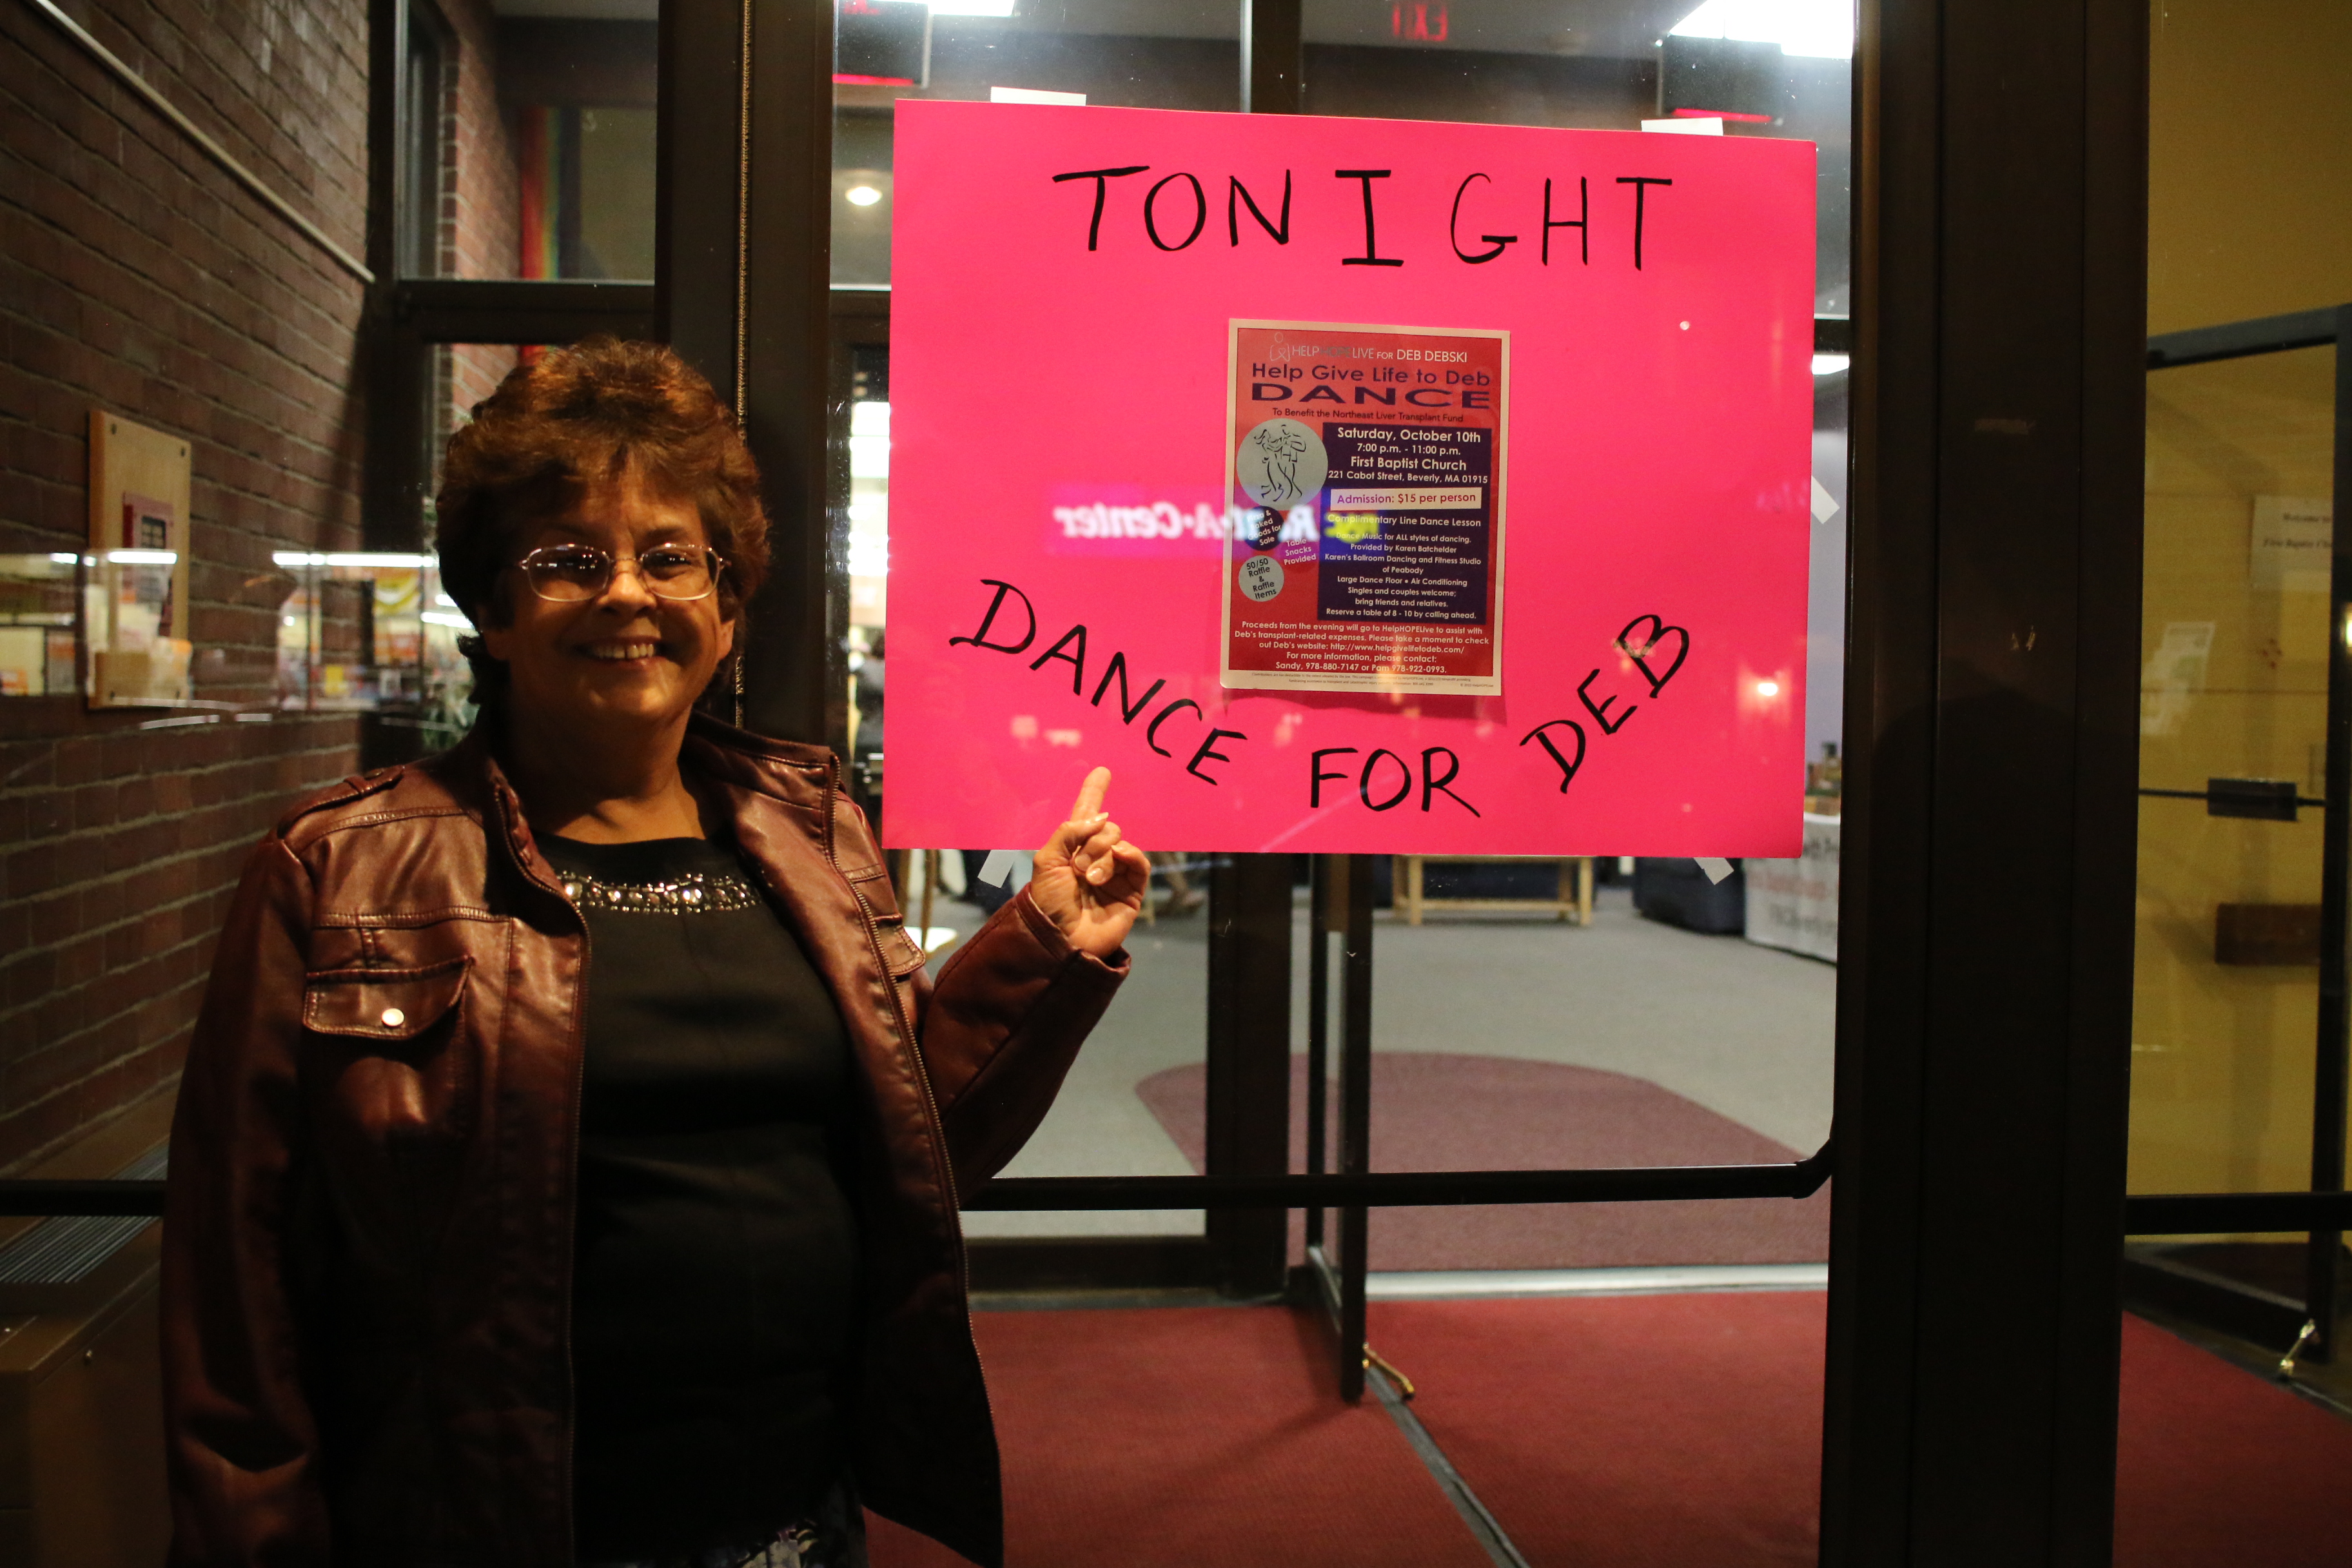 EXIT
TONIGHT
HELPHOPELIVE FOR DEB DEBSKI
Help Give Life to Deb
DANCE
To Benefit the Northeast Liver Transplant Fund
Saturday, October 10th
7:00 p.m. - 11:00 p.m.
First Baptist Church
221 Cabot Street, Beverly, MA 01915
Admission: $15 per person
Complimentary Line Dance Lesson
Dance Music for ALL styles of dancing.
Provided by Karen Batchelder
Karen's Ballroom Dancing and Fitness Studio
of Peabody
Large Dance Floor • Air Conditioning
Singles and couples welcome;
bring friends and relatives.
Reserve a table of 8 - 10 by calling ahead.
&
Goods for
Sale
Table
Snacks
Provided
50/50
Raffle
&
Raffle
Items
Proceeds from the evening will go to HelpHOPELive to assist with
Deb's transplant-related expenses. Please take a moment to check
out Deb's website: http://www.helpgivelifetodeb.com/
For more information, please contact:
Sandy, 978-880-7147 or Pam 978-922-0993.
Rent-A-Center
DANCE FOR DEB
Welcome to
First Baptist